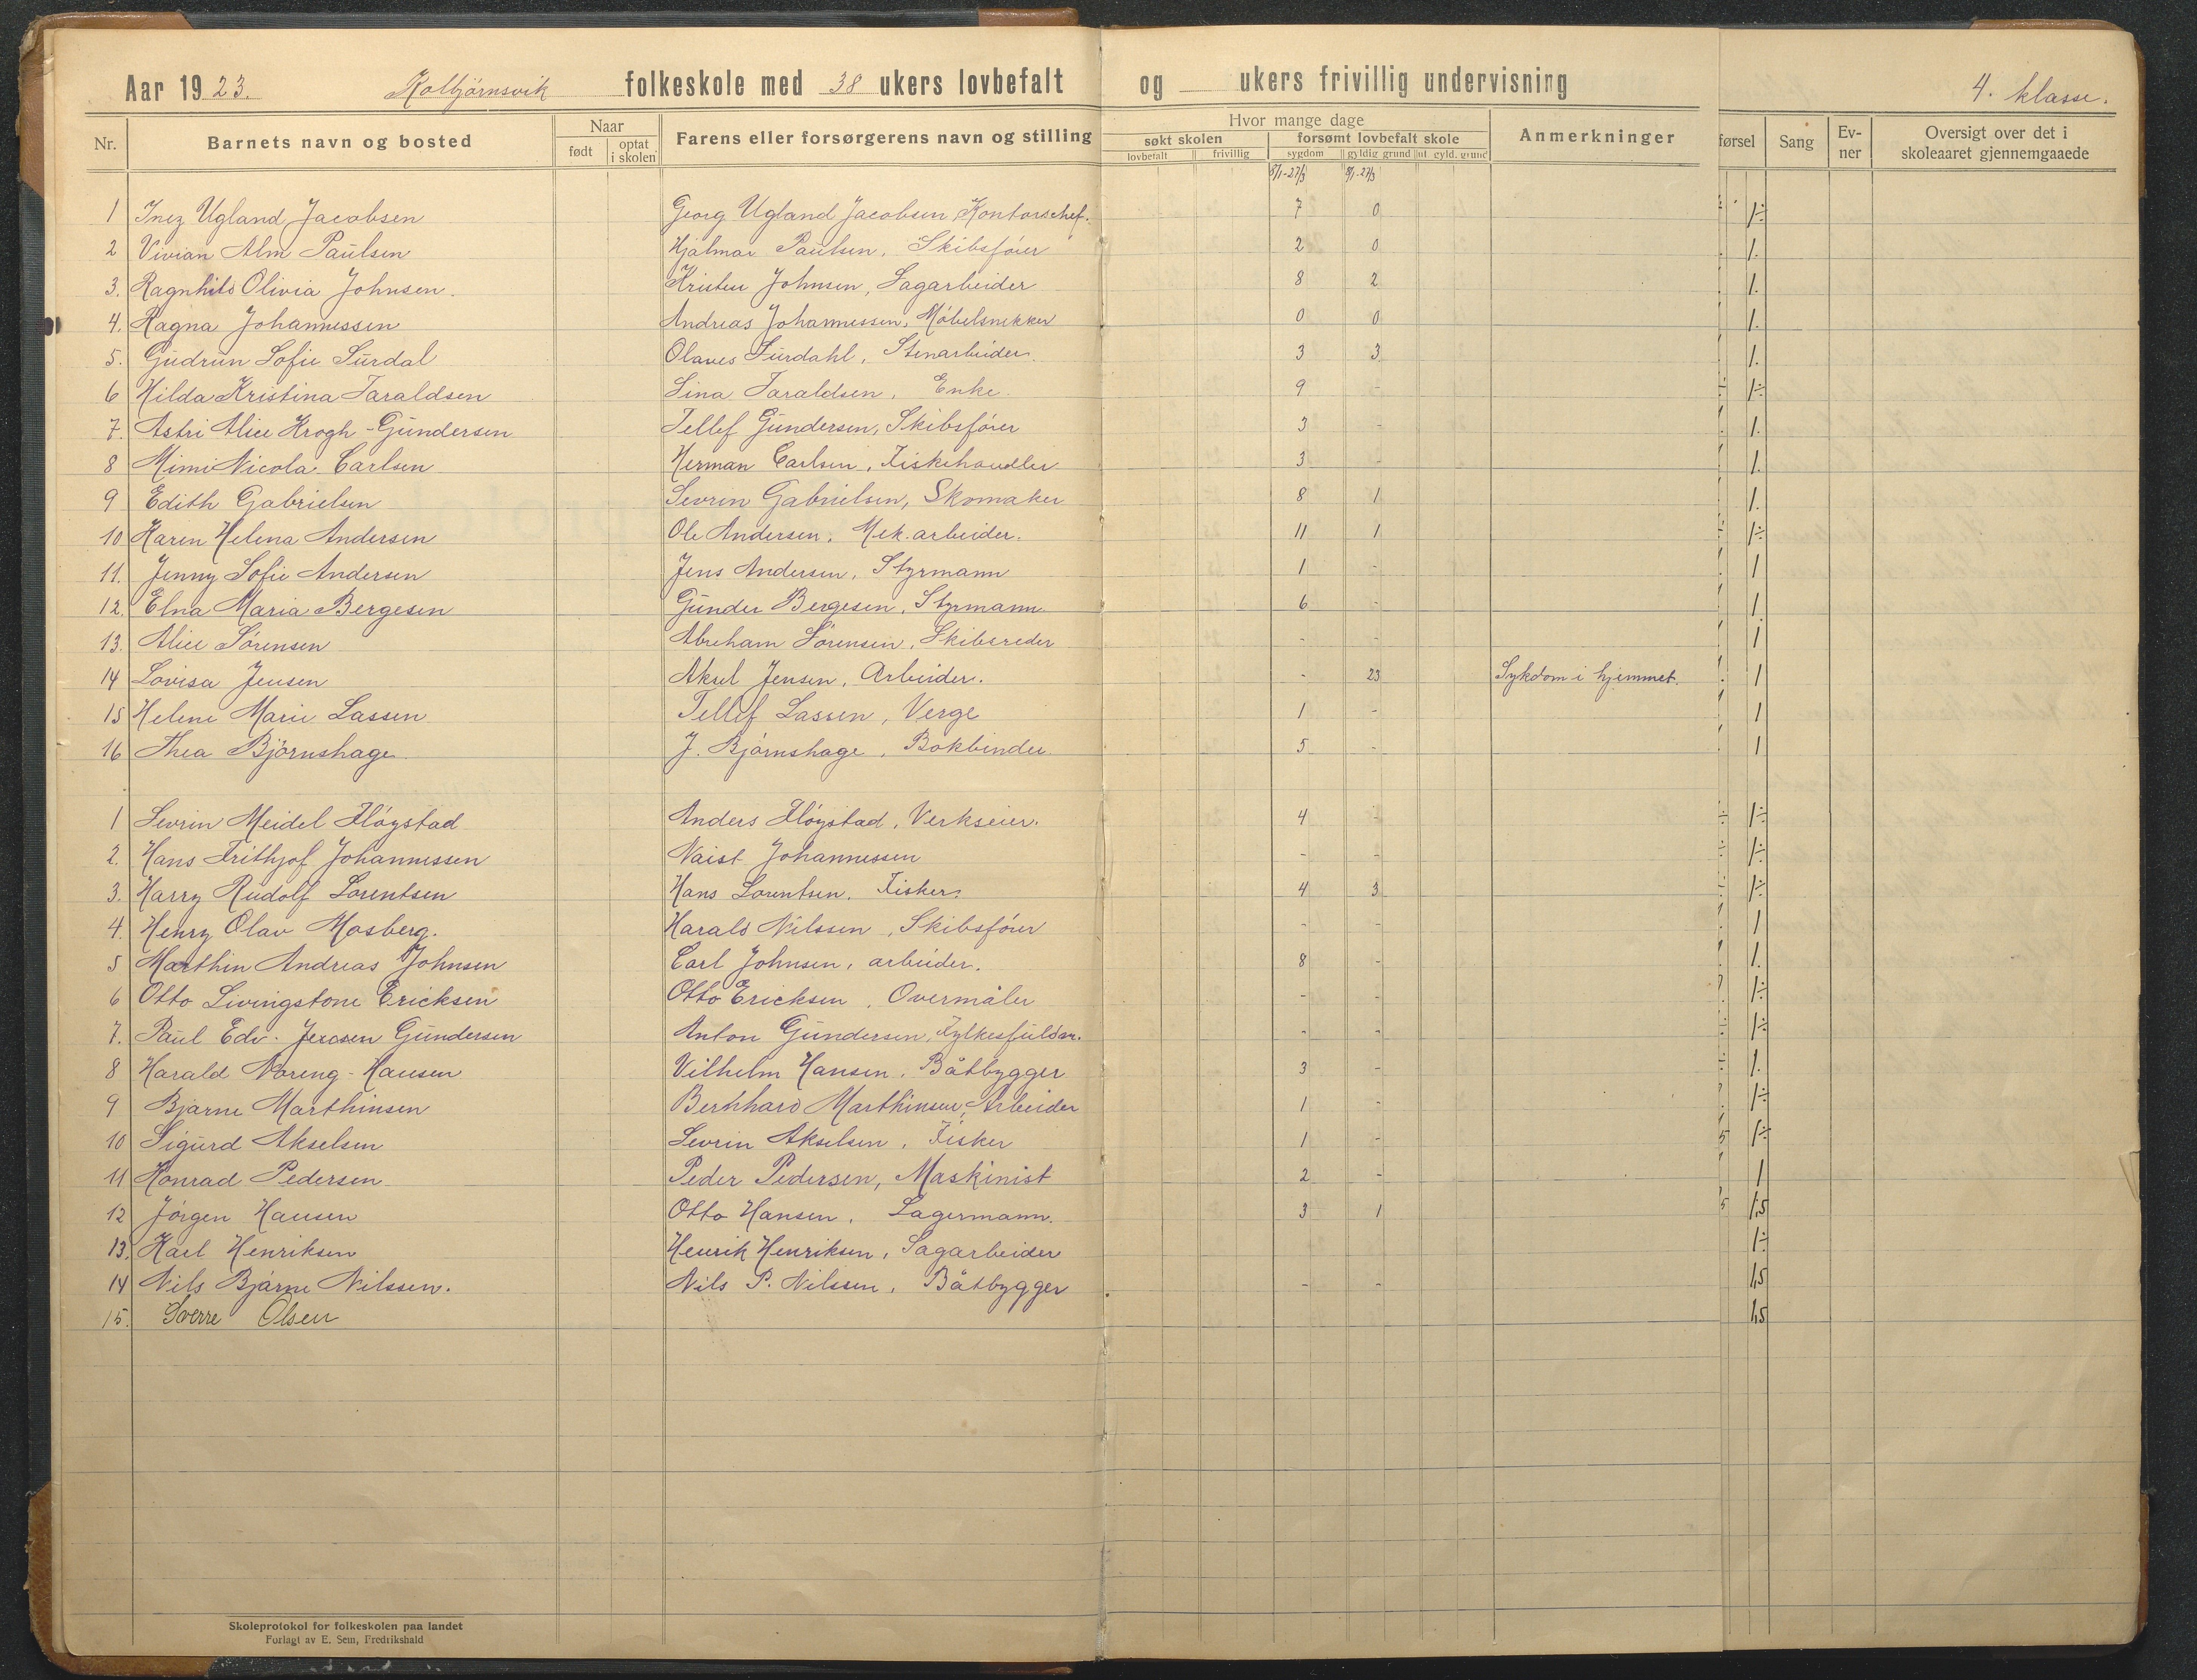 Aar 1923. Kolbjørnsvik folkeskole med 38 ukers lovbefalt og ukers frivillig undervisning 4. klasse.
Nr. Barnets navn og bosted Naar født optat i skolen Farens eller forsørgerens navn og stilling Hvor mange dage søkt skolen lovbefalt frivillig forsømt lovbefalt skole sygdom gyldig grund ut gyld. grund Anmerkninger førsel Sang Ev-ner Oversigt over det i skoleaaret gjennemgaaede
8/1-27/3 8/1-27/3
1 Inez Ugland Jacobsen Georg Ugland Jacobsen Kontorschef. 7 0 1÷
2 Vivian Alm Paulsen Hjalmar Paulsen, Skibsfører 2 0 1.
3. Ragnhild Olivia Johnsen. Kristen Johnsen, Sagarbeider 8 2 1.
4. Ragna Johannessen Andreas Johannessen, Møbelsnekker 0 0 1.
5. Gudrun Sofie Surdal Olaves Surdahl, Stenarbeider. 3 3 1.
6 Hilda Kristina Taraldsen Lina Taraldsen, Enke. 9 - 1÷
7. Astri Alice Krogh-Gundersen Tellef Gundersen, Skibsfører 3 - 1.
8 Mimi Nicola Carlsen Herman Carlsen, Fiskehandler 3 - 1.
9 Edith Gabrielsen Sevrin Gabrielsen, Skomaker 8 1 1.
10 Karen Helena Andersen Ole Andersen, Mek. arbeider. 11 1 1÷
11. Jenny Sofie Andersen Jens Andersen, Styrmann 1 - 1
12. Elna Maria Bergesen Gunder Bergesen, Styrmann 6 - 1.
13. Alice Sørensen Abreham Sørensen, Skibsreder - - 1
14 Lovisa Jensen Aksel Jensen, Arbeider. - 23 Sykdom i hjemmet. 1
15 Helene Marie Lassen Tellef Lassen, Verge 1 - 1
16 Thea Bjørnshage J. Bjørnshage, Bokbinder 5 - 1
1 Sevrin Meidel Fløystad Anders Fløystad, Verkseier. 4 - 1÷
2. Hans Frithjof Johannessen Naist Johannessen - - 1÷
3. Harry Rudolf Lorentsen Hans Lorentsen, Fisker. 4 3 1÷
4. Henry Olav Mosberg. Harald Nilssen, Skibsfører - - 1
5 Marthin Andreas Johnsen Carl Johnsen, arbeider. 8 - 1.
6 Otto Livingstone Ericksen Otto Ericksen, Overmåler - - 1÷
7. Paul Edv. Gundersen Anton Gundersen, - - 1÷
8 Harald Noreng-Hansen Vilhelm Hansen, Båtbygger 3 - 1.
9 Bjarne Marthinsen Bernhard Marthinsen, Arbeider 1 - 1÷
10 Sigurd Akselsen Sevrin Akselsen, Fisker 1 - 1÷
11 Konrad Pedersen Peder Pedersen, Maskinist 2 - 1
12 Jørgen Hansen Otto Hansen, Lagermann. 3 1 1,5
13. Karl Henriksen Henrik Henriksen, Sagarbeider 1÷
14 Nils Bjarne Nilssen. Nils P. Nilssen, Båtbygger - - 1,5
15. Sverre Olsen 1,5
Skoleprotokol for folkeskolen paa landet
Forlagt av E. Sem, Fredrikshald